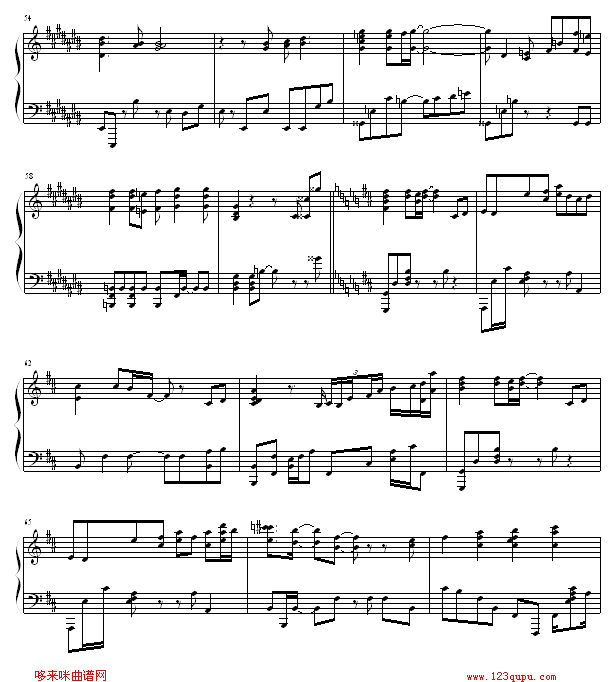 54
58
62
3
65
哆来咪曲谱网
www.123qupu.com